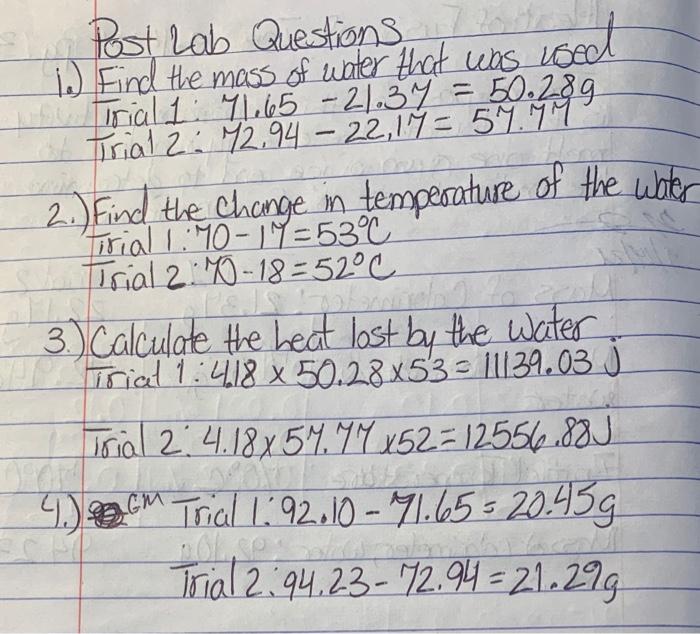 Post Lab Questions
1.) Find the mass of water that was used
Trial 1: 71.65 - 21.37 = 50.28g
Trial 2: 72.94 - 22,17 = 57.77
2.) Find the change in temperature of the water
Trial 1: 70 - 17 = 53°C
Trial 2: 70 - 18 = 52°C
3.) Calculate the heat lost by the water.
Trial 1: 4.18 x 50.28 x 53 = 11139.03 J
Trial 2: 4.18 x 57.77 x 52 = 12556.88J
4.) GM Trial 1: 92.10 - 71.65 = 20.45g
Trial 2: 94.23 - 72.94 = 21.29g